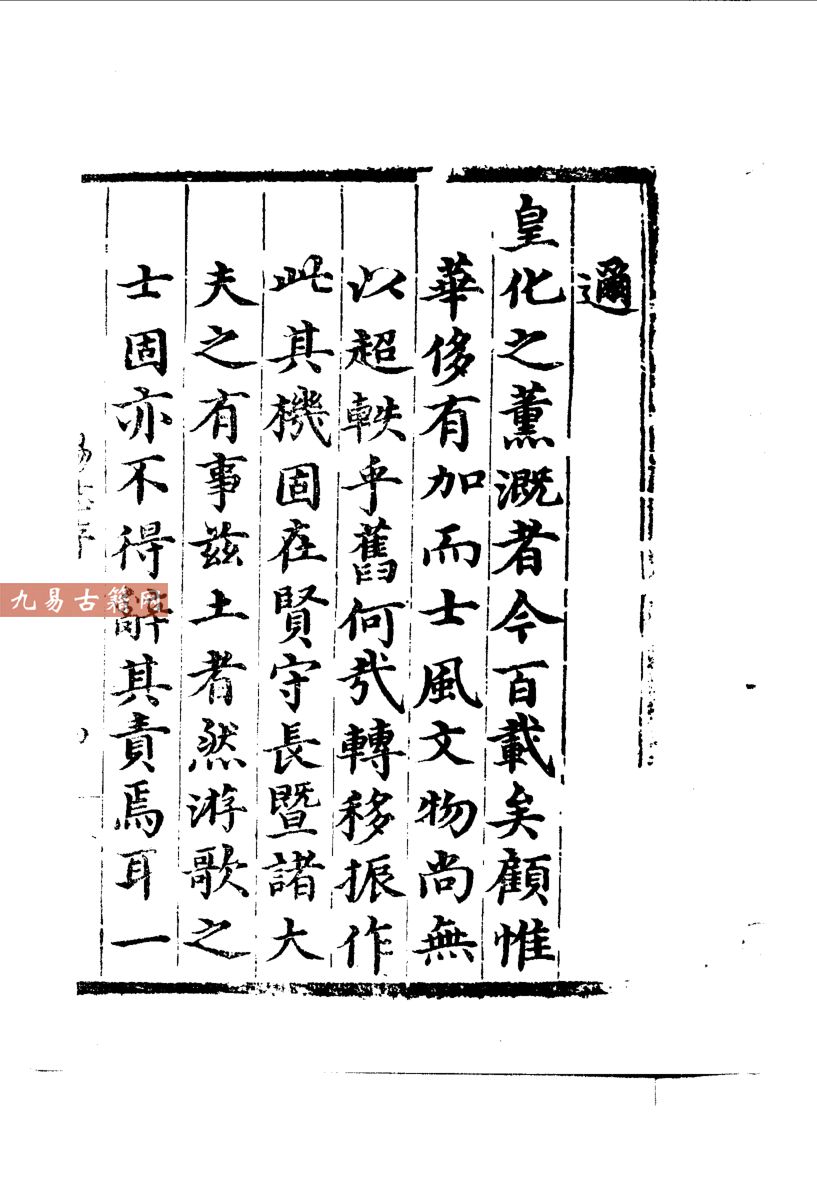 邇
皇化之薰溉者今百載矣顧惟
華侈有加而士風文物尚無
以超軼乎舊何哉轉移振作
此其機固在賢守長暨諸大
夫之有事茲土者然游歌之
士固亦不得辭其責焉耳一
九易古籍网